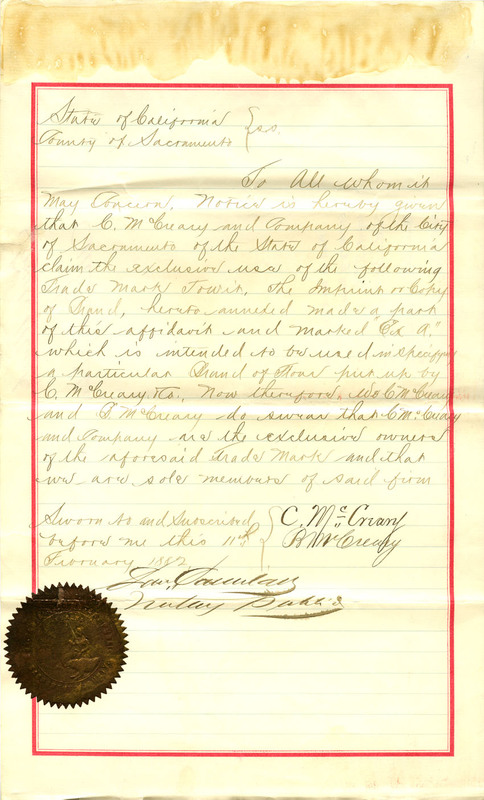 State of California } ss.
County of Sacramento
To All whom it
May Concern. Notice is hereby given
that C. McCreary and Company of the City
of Sacramento of the State of California
claim the exclusive use of the following
Trade Mark Towit, the Imprint or Copy
of Brand, hereto annexed made a part
of this affidavit and marked "Ex A,"
which is intended to be used in specifying
a particular Brand of flour put up by
C. McCreary & Co., Now therefore, We C McCreary
and B McCreary do swear that C McCreary
and Company are the exclusive owners
of the aforesaid Trade Mark and that
we are sole members of said firm
Sworn to and Subscribed
before me this 11th
February 1882
C. McCreary
B McCreary
Notary Public